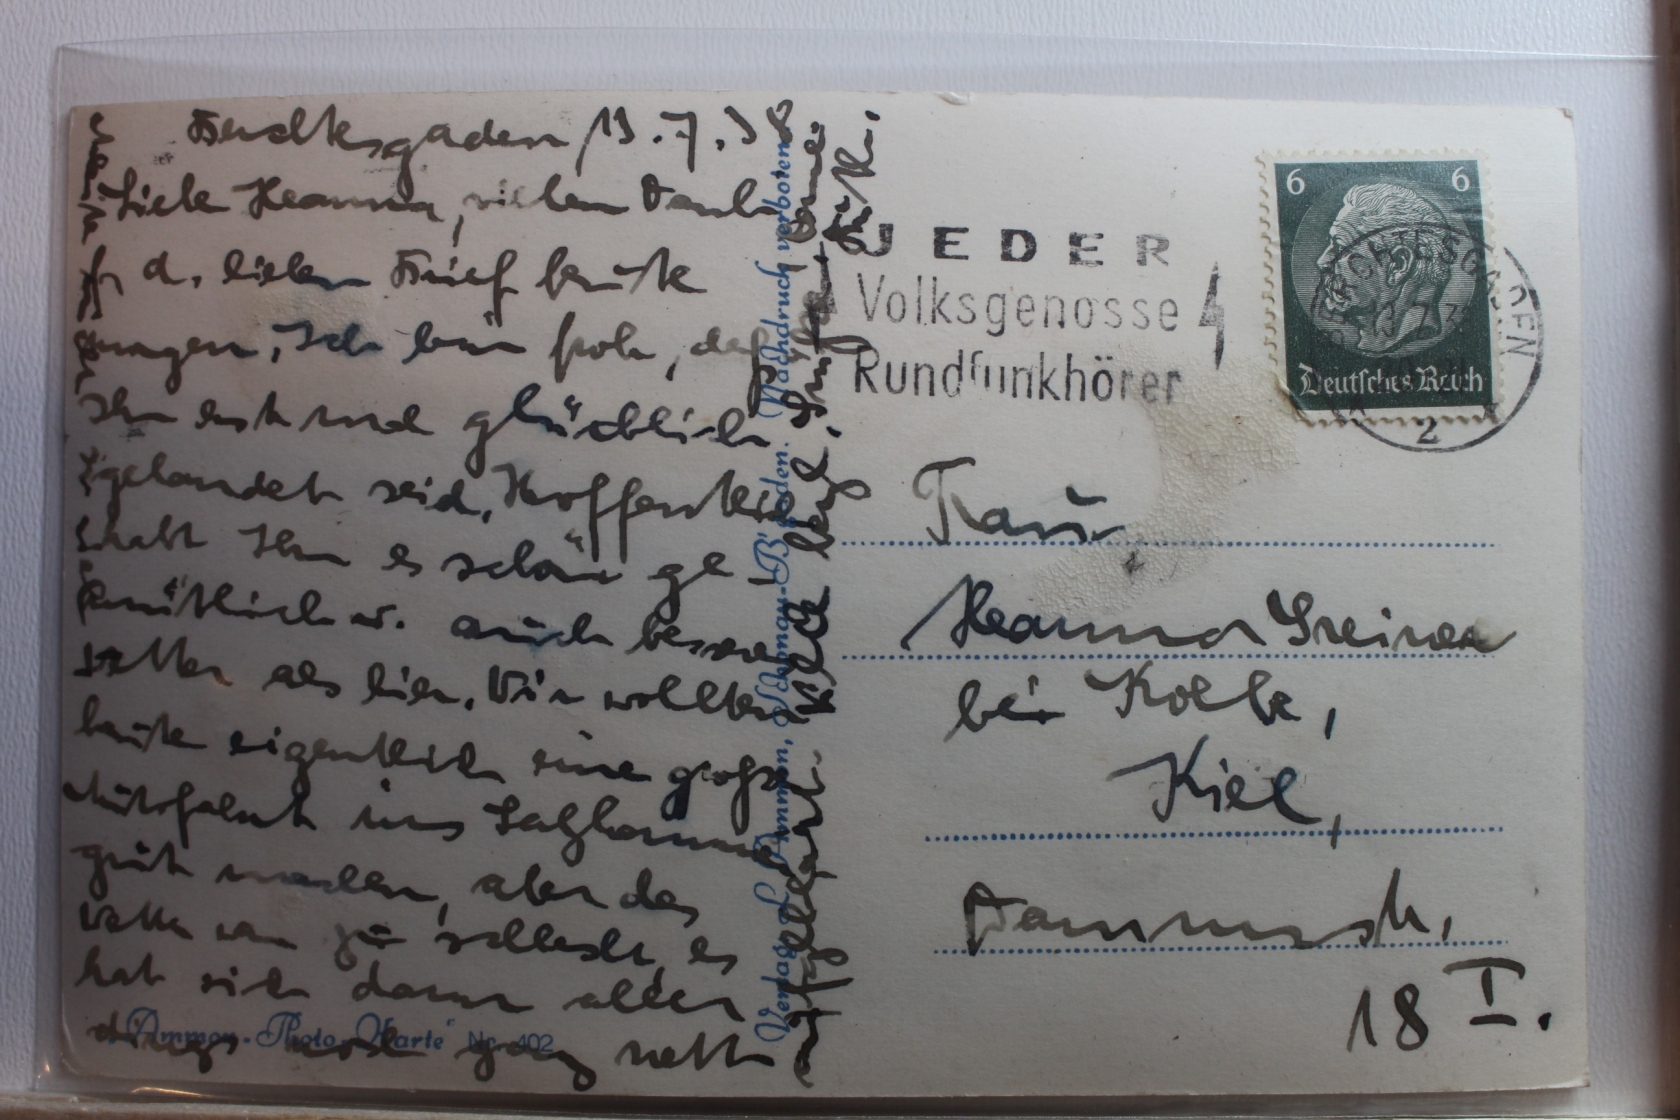 Berchtesgaden 13.7.38
Liebe Hanna, vielen Dank
f. d. lieben Brief heute
morgen, Ich bin froh, daß
Ihr erst und glücklich
gelandet seid, Hoffentlich
habt Ihr es schön ge-
mütlich u. auch besser
Wetter als hier. Wir wollten
heute eigentlich eine große
Autofahrt ins Salzkammer
gut machen, aber das
Wetter war zu schlecht, es
hat sich dann aller
dings noch ganz nett
aufgeklärt.
Ammon-Photo-Karte Nr. 402
Verlag L. Ammon, Schönau-B'gaden. Nachdruck verboten
JEDER
Volksgenosse
Rundfunkhörer
6 6
Deutsches Reich
BERCHTESGADEN
13.7.38
2
Frau
Hanna Greiner
bei Kolbe,
Kiel,
Dammstr.
18 I.